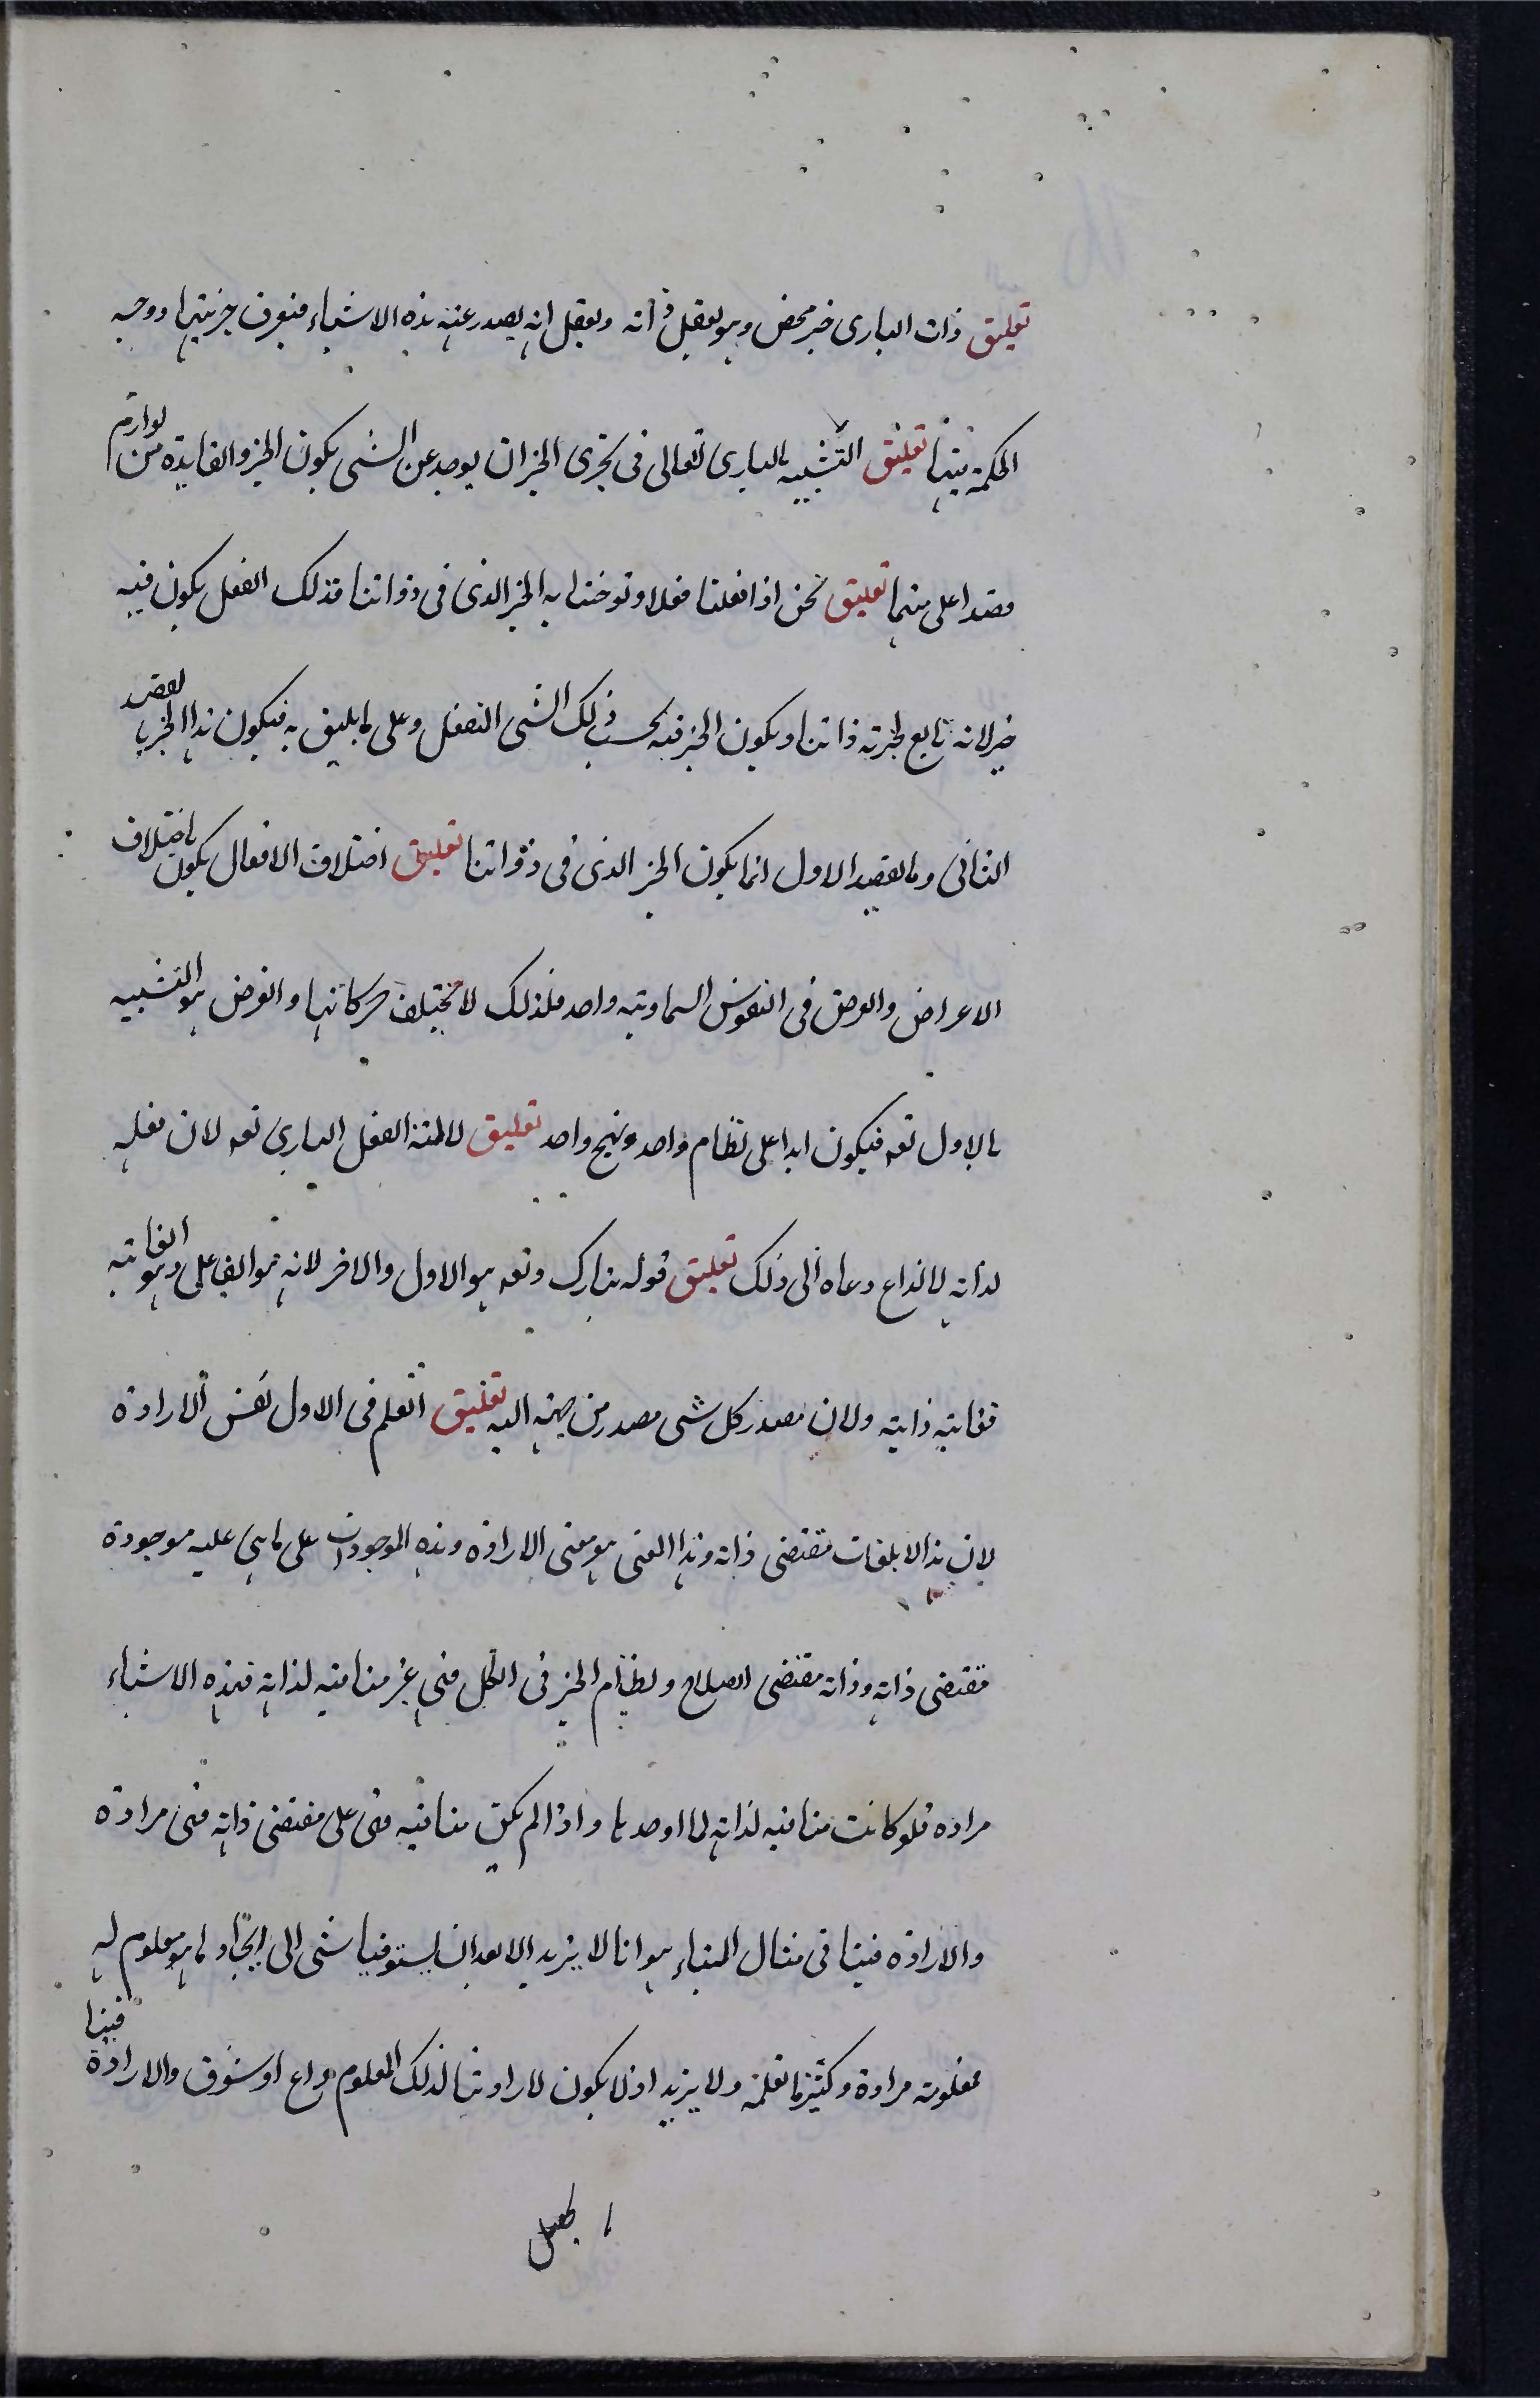 تعليق ذات البارى خير محض وهو يعقل ذاته ويعقل انه يصدر عنه هذه الاشياء فيعرف خيريتها ووجه
الحكمة فيها تعليق التشبيه بالبارى تعالى فى تحرى الخير ان يوجد عن الشى يكون الخير والفايدة من لوازم
قصد اعلى منهما تعليق نحن اذا فعلنا فعلا وتوخينا به الخير الذى فى ذواتنا فذلك الفعل يكون فيه
خير لانه تابع لخيرته ذاتنا ويكون الخير فيه بحسب ذلك الشى الفعل وعلى ما يليق به فيكون هذا الخير بالقصد
الثانى وبالقصد الاول انما يكون الخير الذى فى ذواتنا تعليق اختلاف الافعال يكون باختلاف
الاعراض والعرض فى النفوس السماوية واحد فلذلك لا تختلف حركاتها والغرض هو التشبيه
بالاول تعه فيكون ابدا على نظام واحد ونهج واحد تعليق لا لمية الفعل البارى تعه لان فعله
لذاته لا لداع دعاه الى ذلك تعليق قوله تبارك وتعه هو الاول والاخر لانه هو الفاعل وهو الغاية
فغايته ذاته ولان مصدر كل شى مصدر من جهته اليه تعليق العلم فى الاول نفس الارادة
لان هذا الا بلغات مقتضى ذاته وهذا المعنى هو معنى الارادة وهذه الموجودات على ما هى عليه موجودة
مقتضى ذاته وذاته مقتضى الصلاح ونظام الخير فى الكل فهى غير منافية لذاته فهذه الاشياء
مراده فلو كانت منافية لذاته لما اوجدها واذا لم يكن منافيه فهى على مقتضى ذاته فهى مرادة
والارادة فينا فى مثال البناء هو انا لا يزيد الا بعد ان يستوفينا شى الى ايجاد ما هو معلوم له
معلومة مرادة وكثير ما نعلمه ولا يزيد اذ لا يكون لارادتنا لذلك المعلوم داع او شوق والارادة فينا